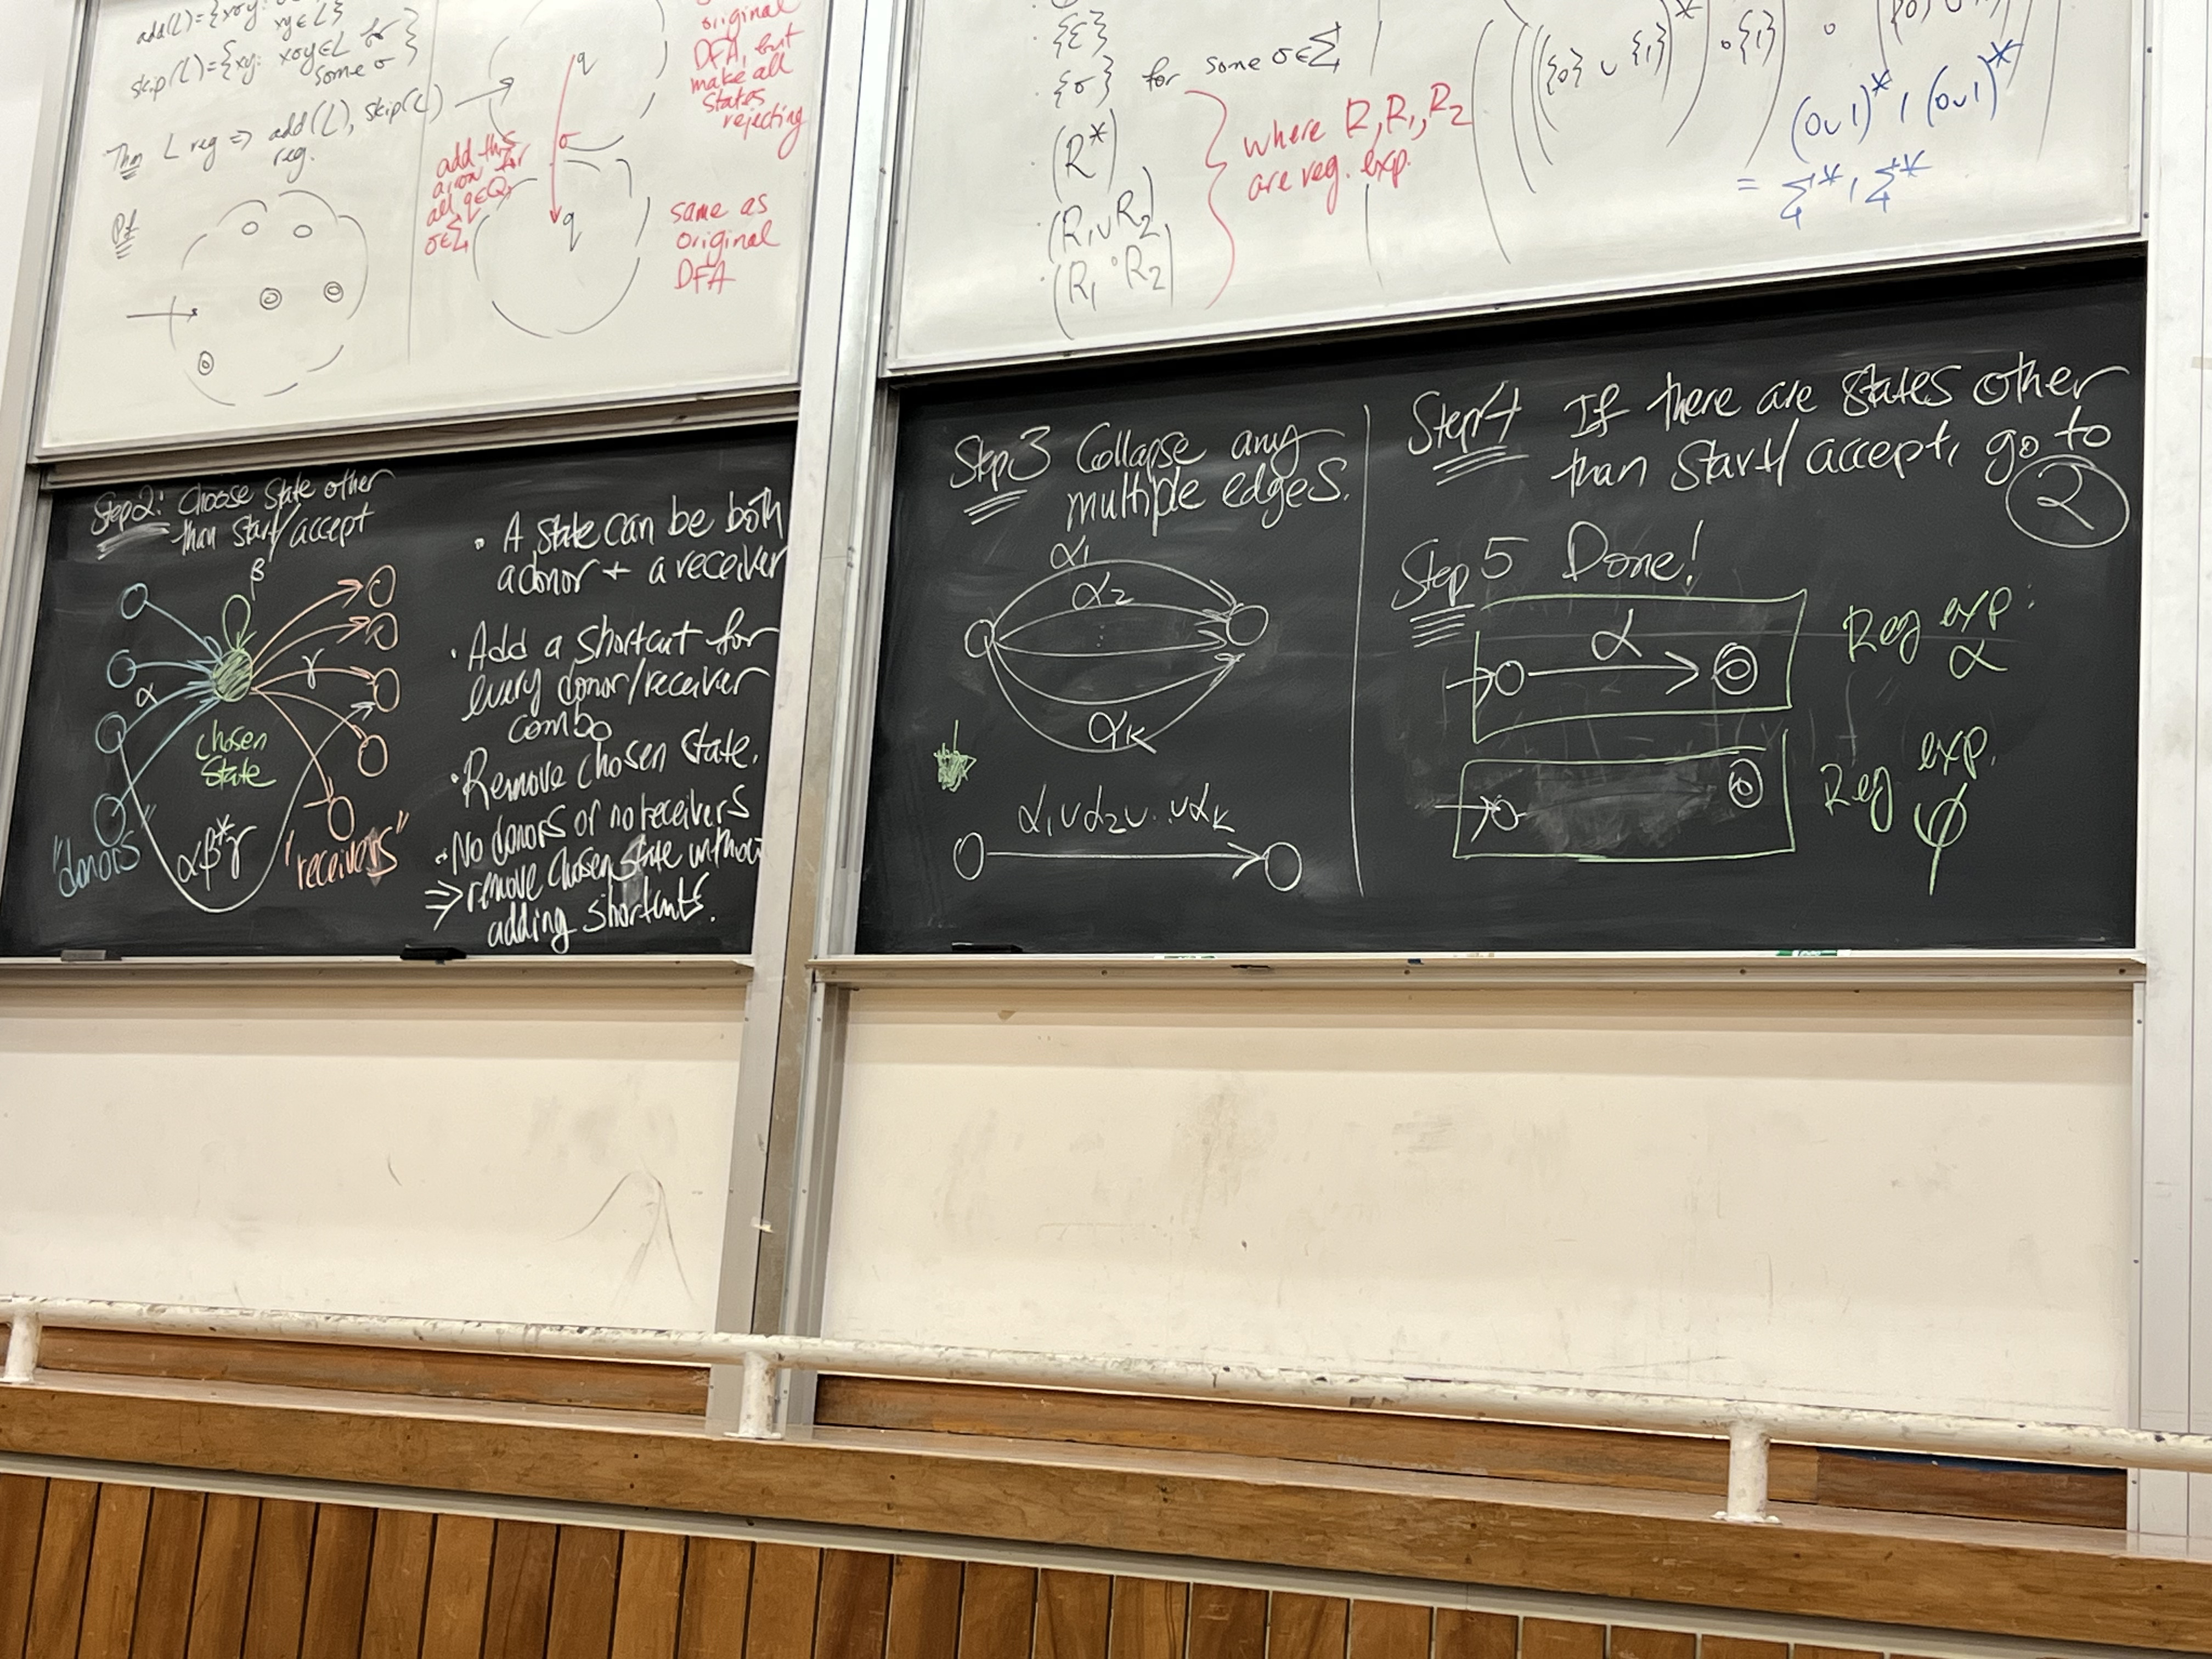 add(L)={xσy:
xy∈L}
skip(L)={xy: xσy∈L for
some σ}
Thm L reg ⇒ add(L), skip(L)
reg.
Pf
add this
arrow for
all q∈Q,
σ∈Σ
q
σ
q
original
DFA, but
make all
states
rejecting
same as
original
DFA
· {ε}
· {σ} for some σ∈Σ
· (R*)
· (R₁∪R₂)
· (R₁∘R₂)
where R, R₁, R₂
are reg. exp.
((({0}∪{1})*∘{1})∘({0}∪
(0∪1)*1(0∪1)*
= Σ*1Σ*
Step 2: Choose state other
than start/accept
β
α
γ
chosen
state
"donors"
αβ*γ
"receivers"
· A state can be both
a donor + a receiver
· Add a shortcut for
every donor/receiver
combo
· Remove chosen state.
· No donors or no receivers
⇒ remove chosen state without
adding shortcuts.
Step 3 Collapse any
multiple edges.
α₁
α₂
⋮
αₖ
α₁∪α₂∪..∪αₖ
Step 4 If there are states other
than start/accept, go to
2
Step 5 Done!
α
Reg exp:
α
Reg exp.
φ